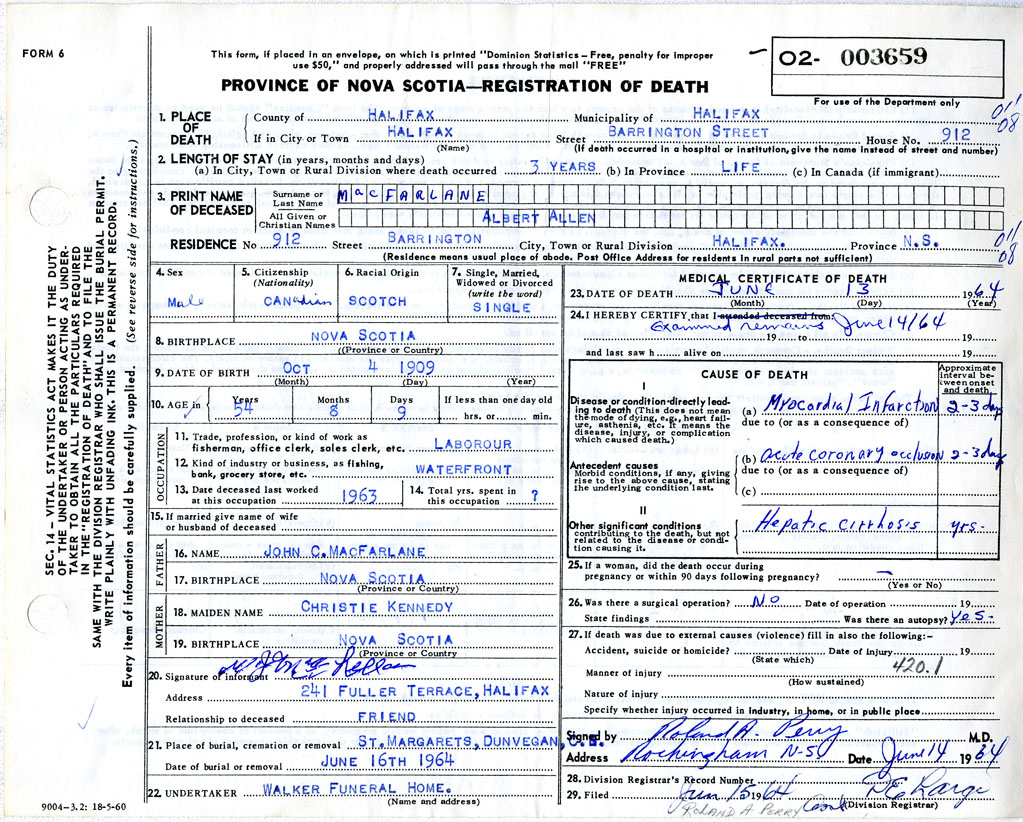 FORM 6
This form, if placed in an envelope, on which is printed "Dominion Statistics—Free, penalty for improper
use $50," and properly addressed will pass through the mail "FREE"
PROVINCE OF NOVA SCOTIA—REGISTRATION OF DEATH
02- 003659
For use of the Department only
1. PLACE OF DEATH
County of HALIFAX Municipality of HALIFAX
011 08
If in City or Town HALIFAX Street BARRINGTON STREET House No. 912
(Name) (If death occurred in a hospital or institution, give the name instead of street and number)
2. LENGTH OF STAY (in years, months and days)
(a) In City, Town or Rural Division where death occurred 3 YEARS (b) In Province LIFE (c) In Canada (if immigrant)
3. PRINT NAME OF DECEASED
Surname or Last Name MacFARLANE
All Given or Christian Names ALBERT ALLEN
RESIDENCE No 912 Street BARRINGTON City, Town or Rural Division HALIFAX. Province N.S.
011 08
(Residence means usual place of abode. Post Office Address for residents in rural parts not sufficient)
4. Sex
Male
5. Citizenship
(Nationality)
CANAdian
6. Racial Origin
SCOTCH
7. Single, Married,
Widowed or Divorced
(write the word)
SINGLE
8. BIRTHPLACE NOVA SCOTIA
((Province or Country)
9. DATE OF BIRTH OCT 4 1909
(Month) (Day) (Year)
10. AGE in
Years Months Days If less than one day old
54 8 9 hrs. or min.
OCCUPATION
11. Trade, profession, or kind of work as
fisherman, office clerk, sales clerk, etc. LABOROUR
12. Kind of industry or business, as fishing,
bank, grocery store, etc. WATERFRONT
13. Date deceased last worked
at this occupation 1963
14. Total yrs. spent in
this occupation ?
15. If married give name of wife
or husband of deceased
FATHER
16. NAME JOHN C. MACFARLANE
17. BIRTHPLACE NOVA SCOTIA
(Province or Country)
MOTHER
18. MAIDEN NAME CHRISTIE KENNEDY
19. BIRTHPLACE NOVA SCOTIA
(Province or Country
20. Signature of informant
Address 241 FULLER TERRACE, HALIFAX
Relationship to deceased FRIEND
21. Place of burial, cremation or removal ST. MARGARETS, DUNVEGAN, C.B.
Date of burial or removal JUNE 16TH 1964
22. UNDERTAKER WALKER FUNERAL HOME.
(Name and address)
9004—3.2: 18-5-60
MEDICAL CERTIFICATE OF DEATH
23. DATE OF DEATH JUNE 13 1964
(Month) (Day) (Year)
24. I HEREBY CERTIFY that I attended deceased from:
Examined remains June 14/64
19 to 19
and last saw h alive on 19
CAUSE OF DEATH
Approximate
interval be-
tween onset
and death
I
Disease or condition directly lead-
ing to death (This does not mean
the mode of dying, e.g., heart fail-
ure, asthenia, etc. It means the
disease, injury, or complication
which caused death.)
(a) Myocardial Infarction 2-3 days
due to (or as a consequence of)
Antecedent causes
Morbid conditions, if any, giving
rise to the above cause, stating
the underlying condition last.
(b) acute coronary occlusion 2-3 days
due to (or as a consequence of)
(c)
II
Other significant conditions
contributing to the death, but not
related to the disease or condi-
tion causing it.
Hepatic cirrhosis yrs-
25. If a woman, did the death occur during
pregnancy or within 90 days following pregnancy? —
(Yes or No)
26. Was there a surgical operation? NO Date of operation 19
State findings Was there an autopsy? yes-
27. If death was due to external causes (violence) fill in also the following:—
Accident, suicide or homicide? Date of injury 19
(State which)
Manner of injury 420.1
(How sustained)
Nature of injury
Specify whether injury occurred in industry, in home, or in public place
Signed by Roland A. Perry M.D.
Address Rockingham N-S Date June 14 1964
28. Division Registrar's Record Number
29. Filed Jun 15 1964
(Division Registrar)
ROLAND A PERRY
SEC. 14 — VITAL STATISTICS ACT MAKES IT THE DUTY
OF THE UNDERTAKER OR PERSON ACTING AS UNDER-
TAKER TO OBTAIN ALL THE PARTICULARS REQUIRED
IN THE "REGISTRATION OF DEATH" AND TO FILE THE
SAME WITH THE DIVISION REGISTRAR WHO SHALL ISSUE THE BURIAL PERMIT.
WRITE PLAINLY WITH UNFADING INK. THIS IS A PERMANENT RECORD.
Every item of information should be carefully supplied. (See reverse side for instructions.)